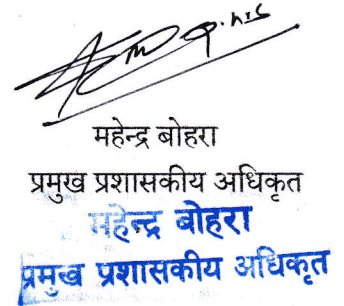 महेन्द्र बोहरा
प्रमुख प्रशासकीय अधिकृत
महेन्द्र बोहरा
प्रमुख प्रशासकीय अधिकृत